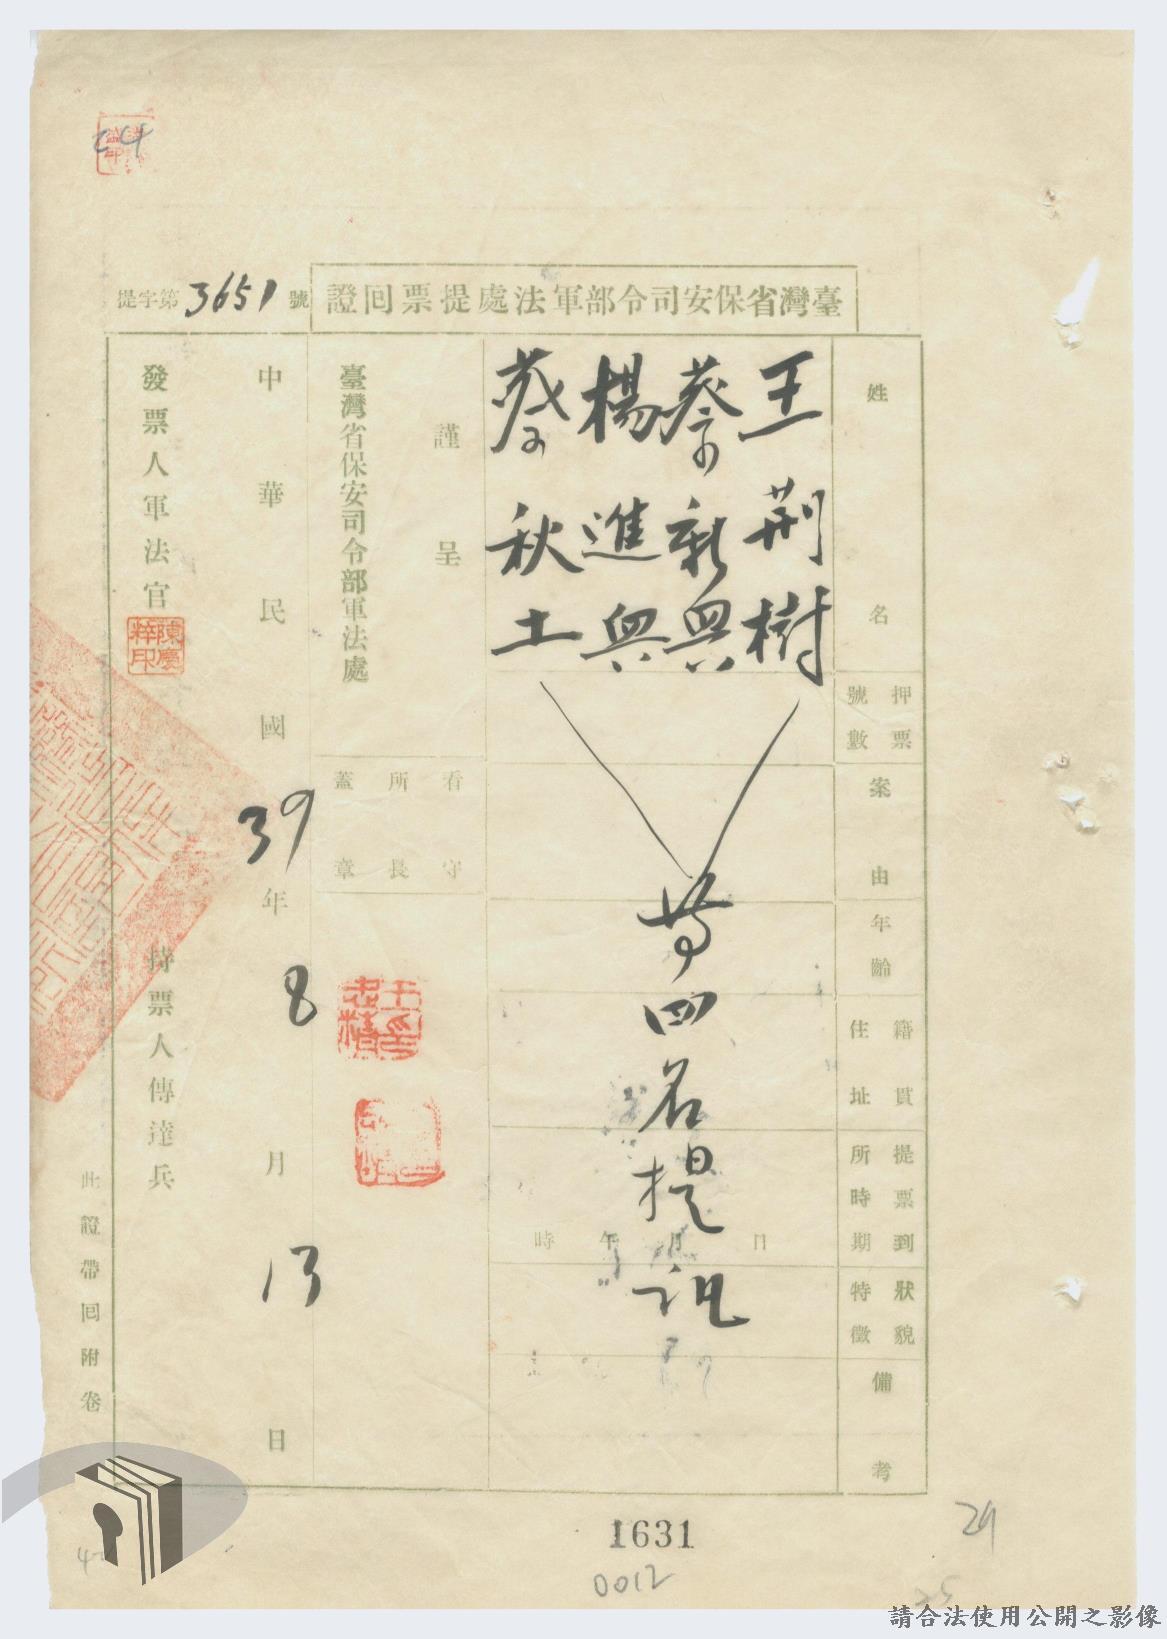 24
臺灣省保安司令部軍法處提票回證
提字第3651號
姓名
押票號數
案由
年齡
籍貫住址
提票到所時期
狀貌特徵
備考
王荆樹
蔡新興
楊進興
蔡秋土
等四名提訊
日月午時
謹呈
臺灣省保安司令部軍法處
看守所長蓋章
中華民國39年8月13日
發票人軍法官
陳慶粹印
持票人傳達兵
此證帶回附卷
1631
0012
29
25
請合法使用公開之影像